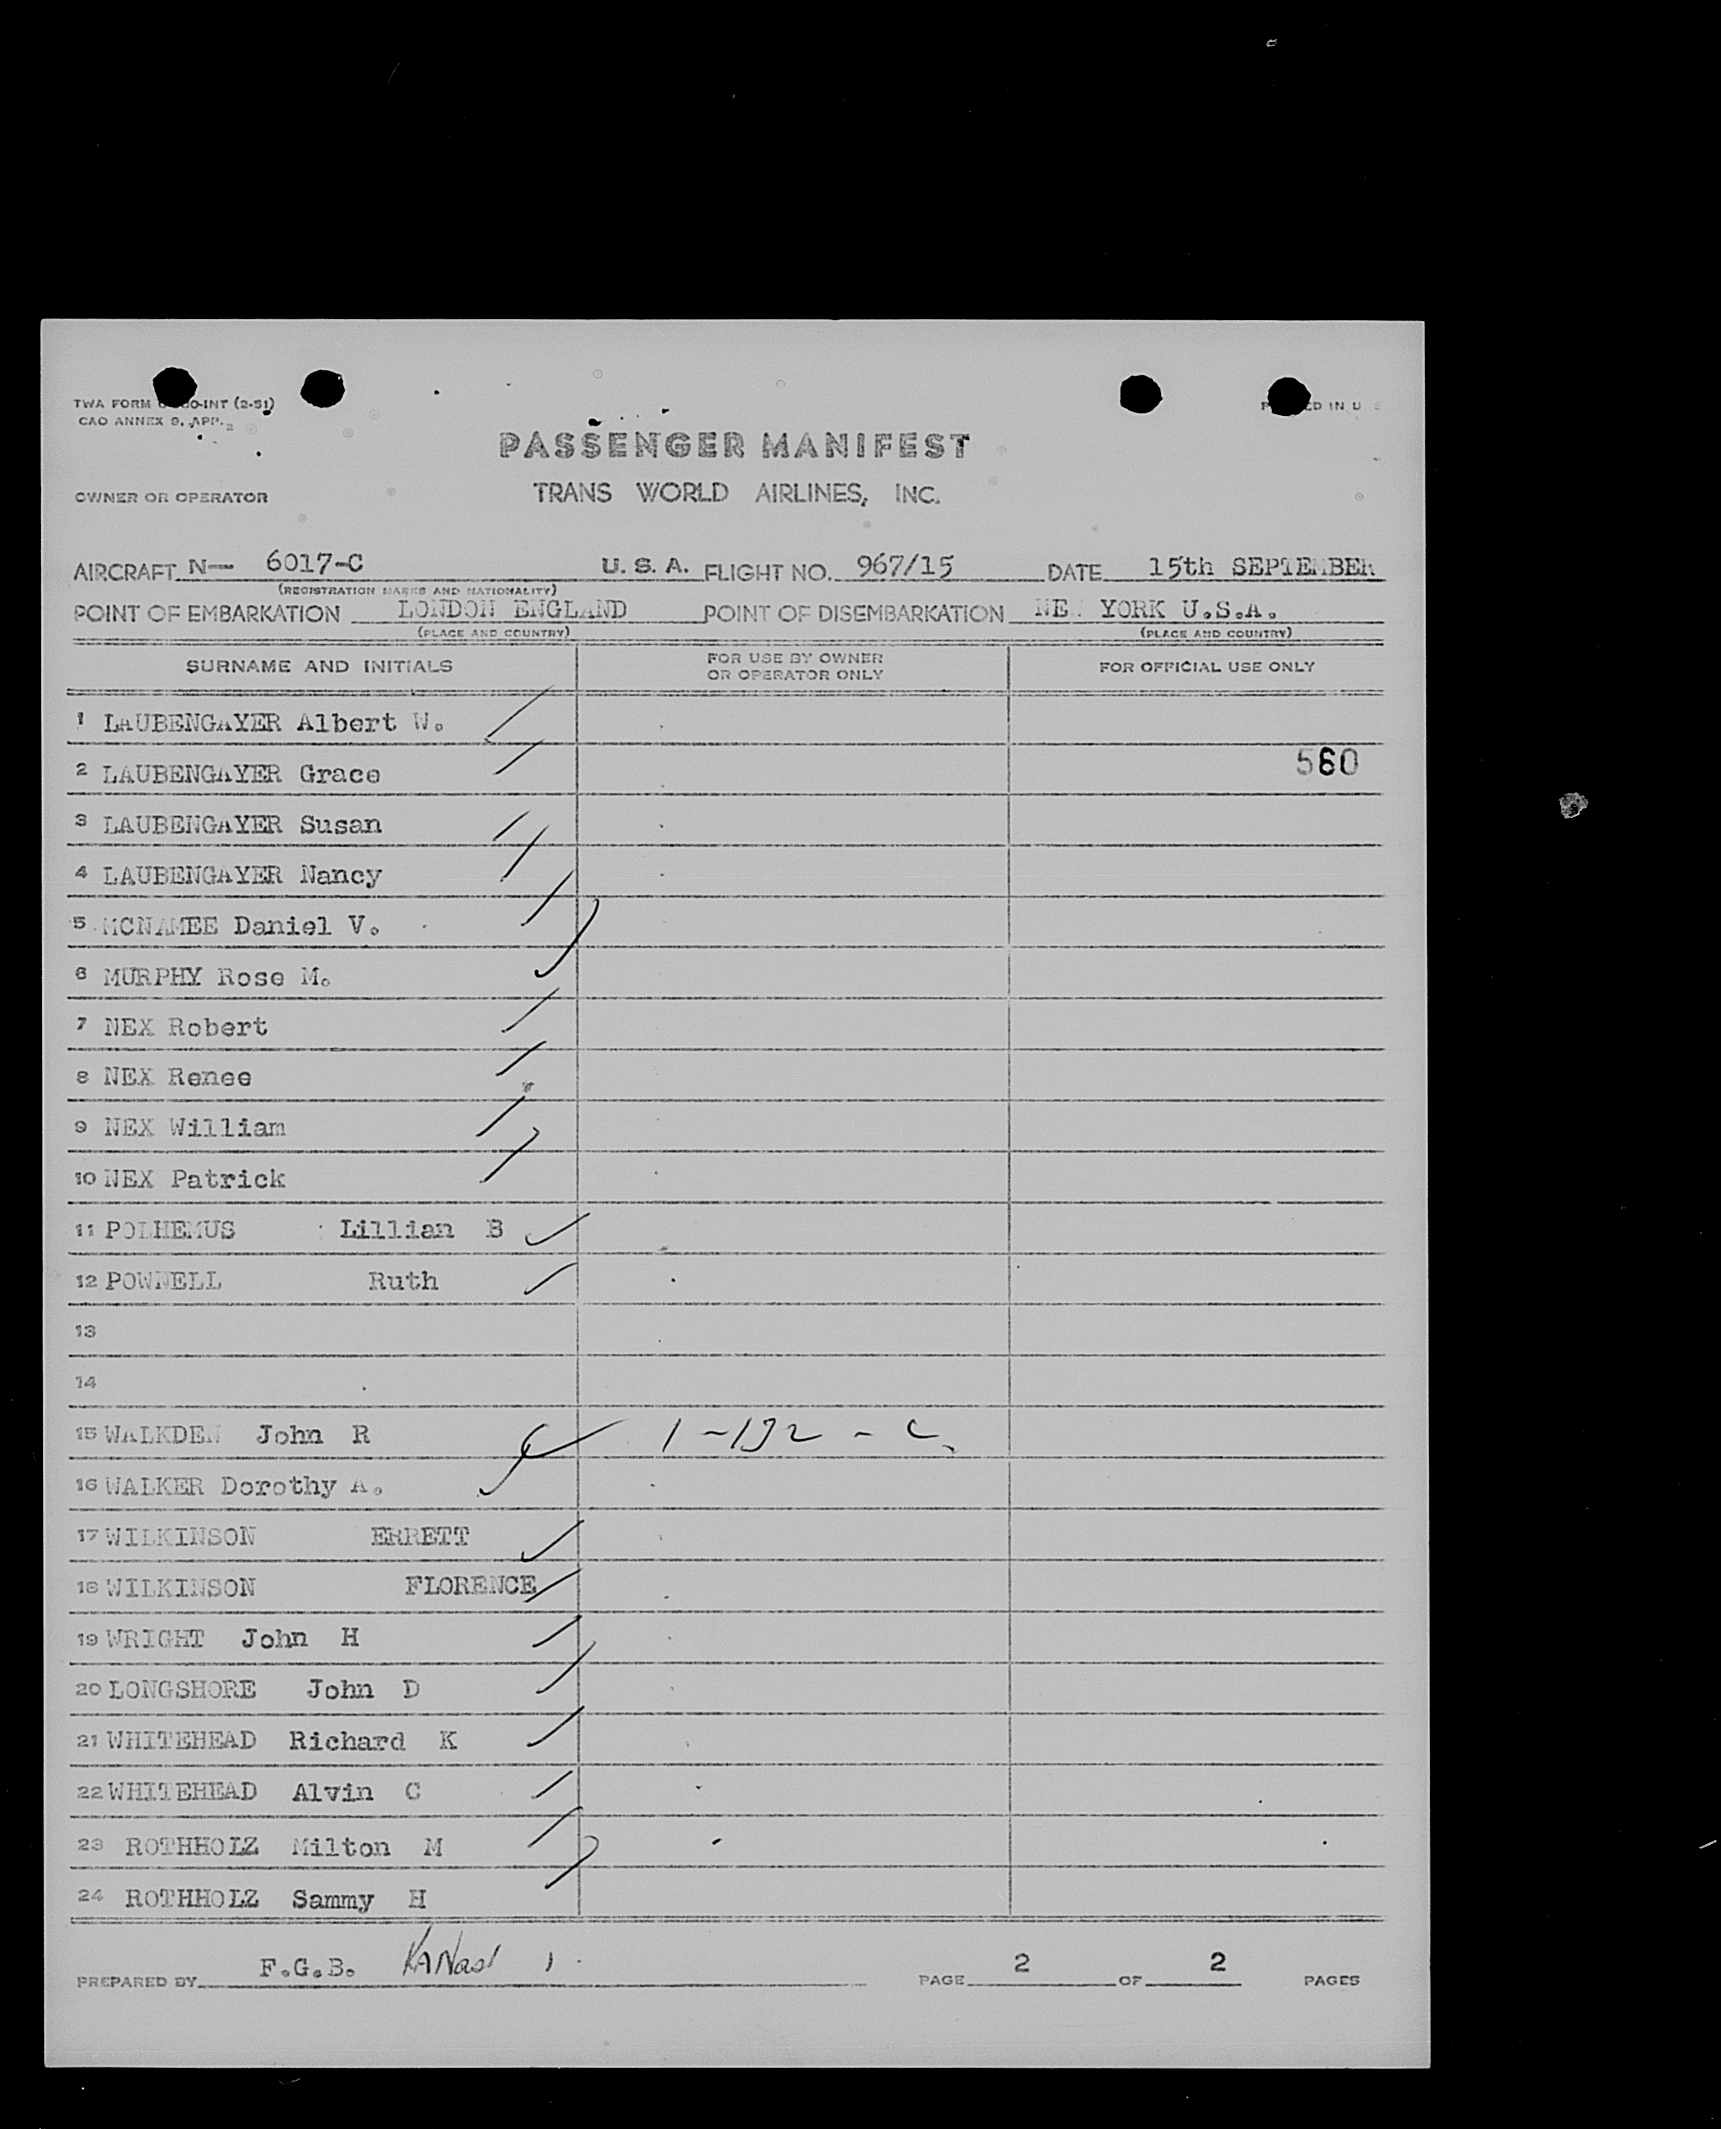 TWA FORM (2-51)
CAO ANNEX 9, APP. 2
PASSENGER MANIFEST
OWNER OR OPERATOR TRANS WORLD AIRLINES, INC.
AIRCRAFT N— 6017-C U. S. A. FLIGHT NO. 967/15 DATE 15th SEPTEMBER
(REGISTRATION MARKS AND NATIONALITY)
POINT OF EMBARKATION LONDON ENGLAND POINT OF DISEMBARKATION NEW YORK U.S.A.
(PLACE AND COUNTRY) (PLACE AND COUNTRY)
SURNAME AND INITIALS FOR USE BY OWNER OR OPERATOR ONLY FOR OFFICIAL USE ONLY
1 LAUBENGAYER Albert W.
2 LAUBENGAYER Grace 560
3 LAUBENGAYER Susan
4 LAUBENGAYER Nancy
5 MCNAMEE Daniel V.
6 MURPHY Rose M.
7 NEX Robert
8 NEX Renee
9 NEX William
10 NEX Patrick
11 POLHEMUS Lillian B
12 POWNELL Ruth
13
14
15 WALKDEN John R
16 WALKER Dorothy A.
17 WILKINSON ERRETT
18 WILKINSON FLORENCE
19 WRIGHT John H
20 LONGSHORE John D
21 WHITEHEAD Richard K
22 WHITEHEAD Alvin C
23 ROTHHOLZ Milton M
24 ROTHHOLZ Sammy H
PREPARED BY F.G.B. PAGE 2 OF 2 PAGES